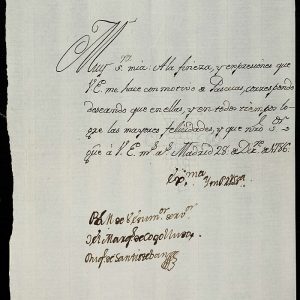 Muy s.ra mia: A la fineza, y expresiones que
V.E. me hace con motivo de Pascuas, correspondo
deseando que en ellas, y en todo tiempo lo-
gre las mayores felicidades, y que nro S.or
gue à V.E. m.s a.s Madrid 28 de Dic.re de 1786.
Ex.ma
BLM de V.E. su m.or ser.or
El Marq.s de Cogolludo,
Duq.e de Santisteban